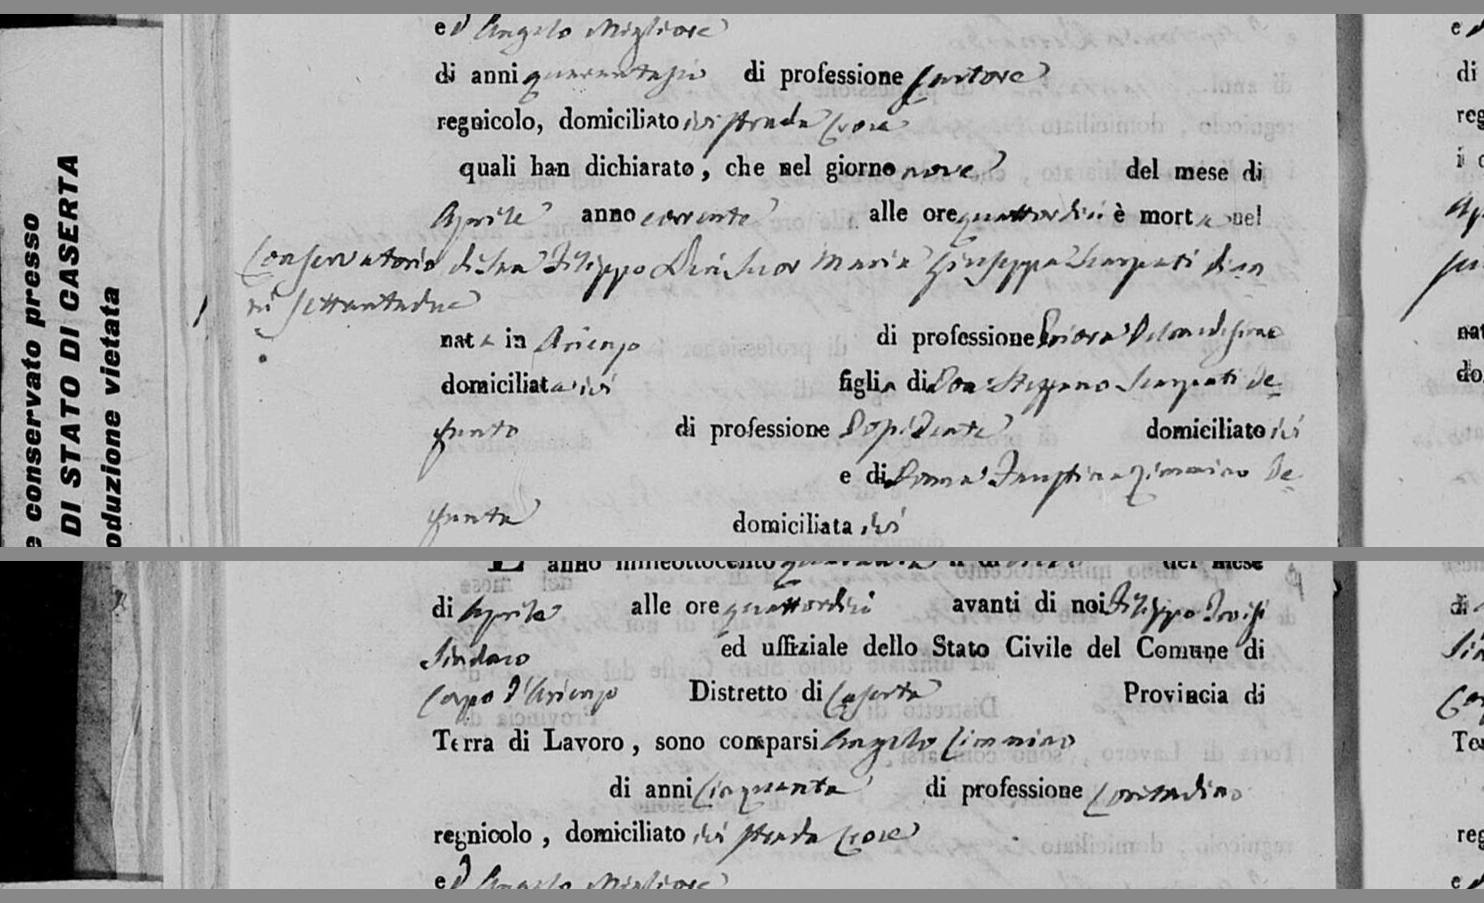 e conservato presso
DI STATO DI CASERTA
oduzione vietata
ed Angelo Migliore
di anni quarantasei di professione Sartore
regnicolo, domiciliato ivi strada Croce
quali han dichiarato, che nel giorno nove del mese di
Aprile anno corrente alle ore quattordici è morta nel
Conservatorio di San Filippo Neri Suor Maria Giuseppa Scarpati di an
ni settantadue
nata in Arienzo di professione Priora del medesimo
domiciliata ivi figlia di Don Stefano Scarpati de
funto di professione domiciliato ivi
e di Donna Faustina Zimmino de
funta domiciliata ivi
anno milleottocento quaranta il dì del mese
di Aprile alle ore quattordici avanti di noi Filippo
Sindaco ed uffiziale dello Stato Civile del Comune di
Corpo d'Arienzo Distretto di Caserta Provincia di
Terra di Lavoro, sono comparsi Angelo Cimmino
di anni Cinquanta di professione Contadino
regnicolo, domiciliato ivi strada Croce
ed Angelo Migliore